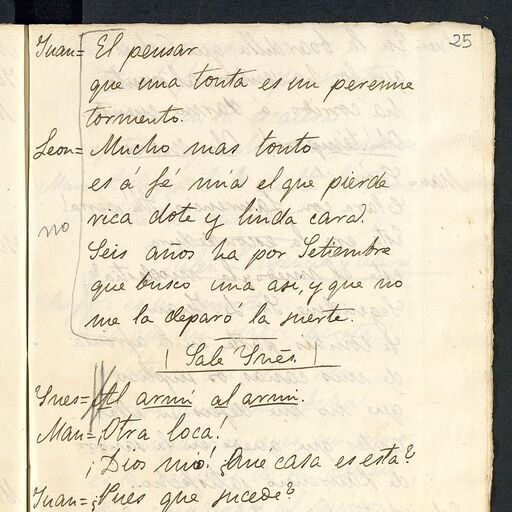 25
Juan= El pensar
que una tonta es un perenne
tormento.
Leon= Mucho mas tonto
es á fé mia el que pierde
rica dote y linda cara.
no
Seis años ha por Setiembre
que busco una asi, y que no
me la deparó la suerte.
(Sale Ynés.)
Ynes= Al armi al armi.
Man= ¡Otra loca!
¡Dios mio! ¿Qué casa es esta?
Juan= ¿Pues que sucede?